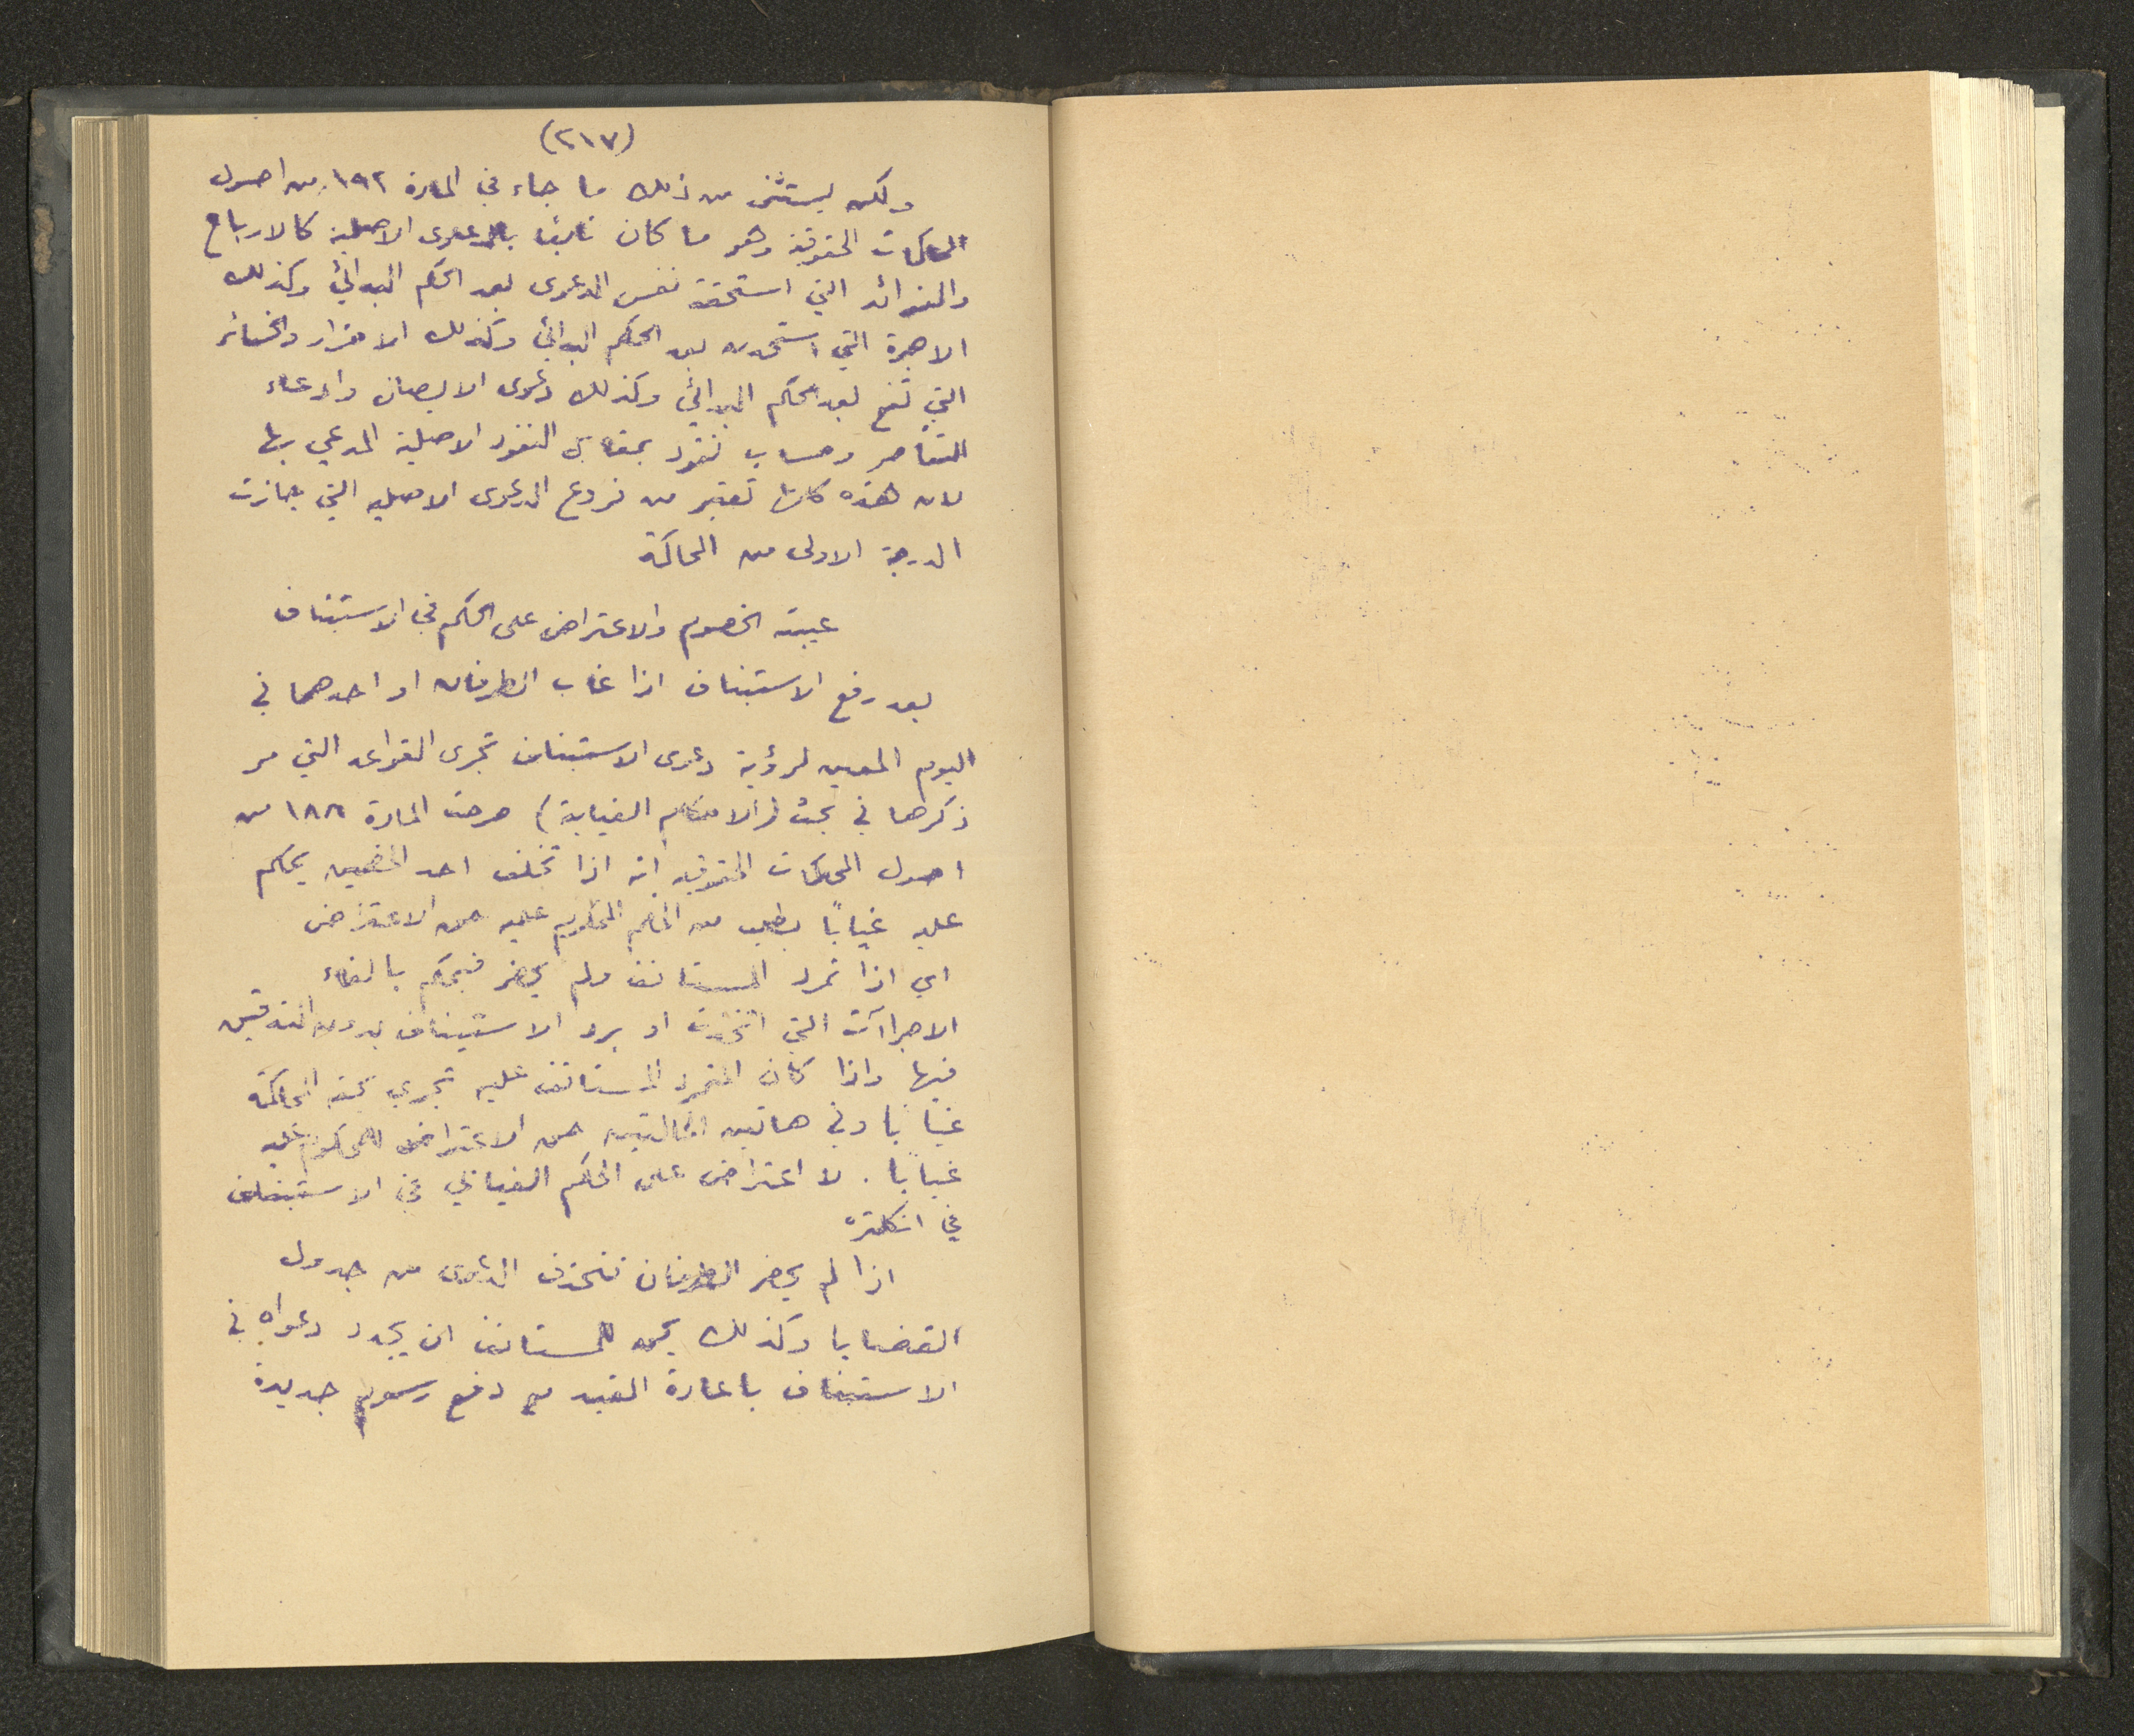 (٢١٧)
ولكن يستثنى من ذلك ما جاء في المادة ١٩٢ من اصول
المحاكمات الحقوقية وهو ما كان تابعا بالدعوى الاصلية كالارباح
والفوائد التي استحقت نفس الدعوى بعد الحكم البدائي وكذلك
الاجرة التي استحدث بعد الحكم البدائي وكذلك الاضرار والخسائر
التي تقع بعد الحكم البدائي وكذلك دعوى الايصان وادعاء
التقاصر وحساب نقود بمقابل النقود الاصلية المدعي بها
لان هذه كلها تعتبر من فروع الدعوى الاصليه التي جازت
الدرجة الاولى من المحاكمة
غيبة الخصوم والاعتراض على الحكم في الاستئناف
بعد رفع الاستئناف اذا غاب الطرفان او احدهما في
اليوم المعين لرؤية دعوى الاستئناف تجرى القواعد التي مر
ذكرها في بحث (الاحكام الغيابية) صرحت المادة ١٨٨ من
اصول المحاكمات الحقوقيه انه اذا تخلف احد الخصمين يحكم
عليه غيابًا بطلب من الخصم المحكوم عليه حق الاعتراض
اي اذا تمرد المستانف ولم يحضر فيحكم بالغاء
الاجراآت التي اتخذت او برد الاستيناف بدون التدقيق
فيها واذا كان المتمرد المستانف عليه تجري بحقه المحاكمة
غيابا وفي هاتين الحالتين حق الاعتراض للمحكوم عليه
غيابا. لا اعتراض على الحكم الغيابي في الاستئناف
في انكلتره
اذا لم يحضر الطرفان تنحذف الدعوى من جدول
القضايا وكذلك يحق للمستانف ان يجدد دعواه في
الاستئناف باعادة القيد مع دفع رسوم جديدة